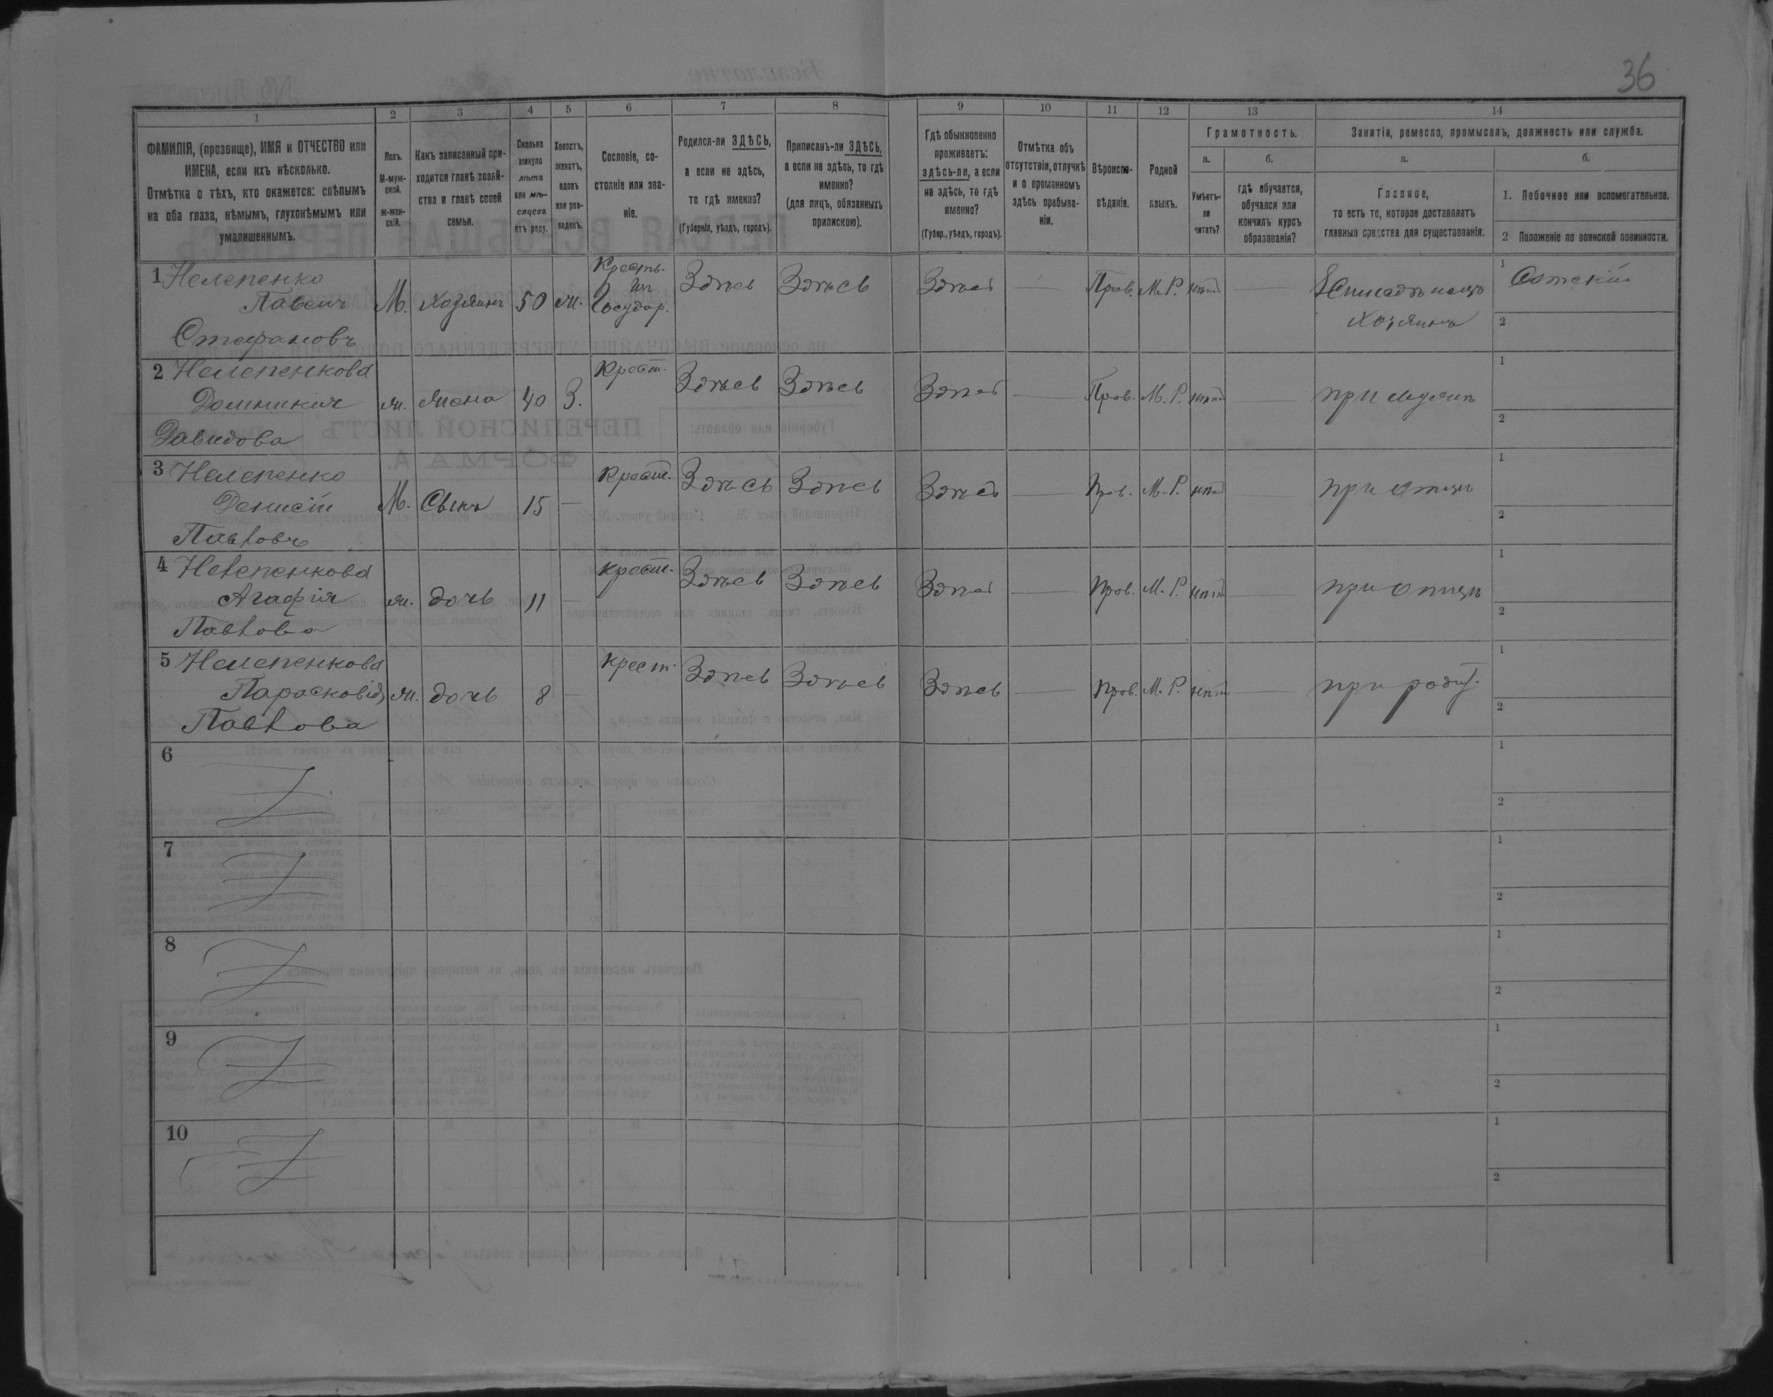 36
1
2
3
4
5
6
7
8
9
10
11
12
13
14
ФАМИЛІЯ, (прозвище), ИМЯ и ОТЧЕСТВО или
ИМЕНА, если ихъ нѣсколько.
Отмѣтка о тѣхъ, кто окажется: слѣпымъ
на оба глаза, нѣмымъ, глухонѣмымъ или
умалишеннымъ.
Полъ.
М-муж-
ской.
ж-жен-
скій.
Какъ записанный при-
ходится главѣ хозяй-
ства и главѣ своей
семьи.
Сколько
минуло
лѣтъ
или мѣ-
сяцевъ
отъ роду.
Холостъ,
женатъ,
вдовъ
или раз-
веденъ.
Сословіе, со-
стояніе или зва-
ніе.
Родился-ли ЗДѢСЬ,
а если не здѣсь,
то гдѣ именно?
(Губернія, уѣздъ, городъ).
Приписанъ-ли ЗДѢСЬ,
а если не здѣсь, то гдѣ
именно?
(для лицъ, обязанныхъ
припискою).
Гдѣ обыкновенно
проживаетъ:
здѣсь-ли, а если
не здѣсь, то гдѣ
именно?
(Губер., уѣздъ, городъ).
Отмѣтка объ
отсутствіи, отлучкѣ
и о временномъ
здѣсь пребыва-
ніи.
Вѣроиспо-
вѣданіе.
Родной
языкъ.
Грамотность.
а.
б.
Умѣетъ-
ли
читать?
гдѣ обучается,
обучался или
кончилъ курсъ
образованія?
Занятіе, ремесло, промыселъ, должность или служба.
а.
б.
Главное,
то есть то, которое доставляетъ
главныя средства для существованія.
1. Побочное или вспомогательное.
2 Положеніе по воинской повинности.
1 Нелепенко
Павелъ
Стефановъ
М. Хозяинъ 50 ж. Крестъ. изъ Государ. Здѣсь Здѣсь Здѣсь — Прав. М.Р. нѣтъ —
Хозяинъ
1 Сотскій
2
2 Нелепенкова
Домникія
Давидова
ж. жена 40 З. Крест. Здѣсь Здѣсь Здѣсь — Прав. М.Р. нѣтъ — при мужѣ
1
2
3 Нелепенко
Денисій
Павловъ
М. Сынъ 15 — Крест. Здѣсь Здѣсь Здѣсь — Прав. М.Р. нѣтъ — при отцѣ
1
2
4 Нелепенкова
Агафія
Павлова
ж. дочь 11 — Крест. Здѣсь Здѣсь Здѣсь — Прав. М.Р. нѣтъ — при отцѣ
1
2
5 Нелепенкова
Парасковія
Павлова
ж. дочь 8 — крест. Здѣсь Здѣсь Здѣсь — Прав. М.Р. нѣтъ — при родит.
1
2
6
1
2
7
1
2
8
1
2
9
1
2
10
1
2